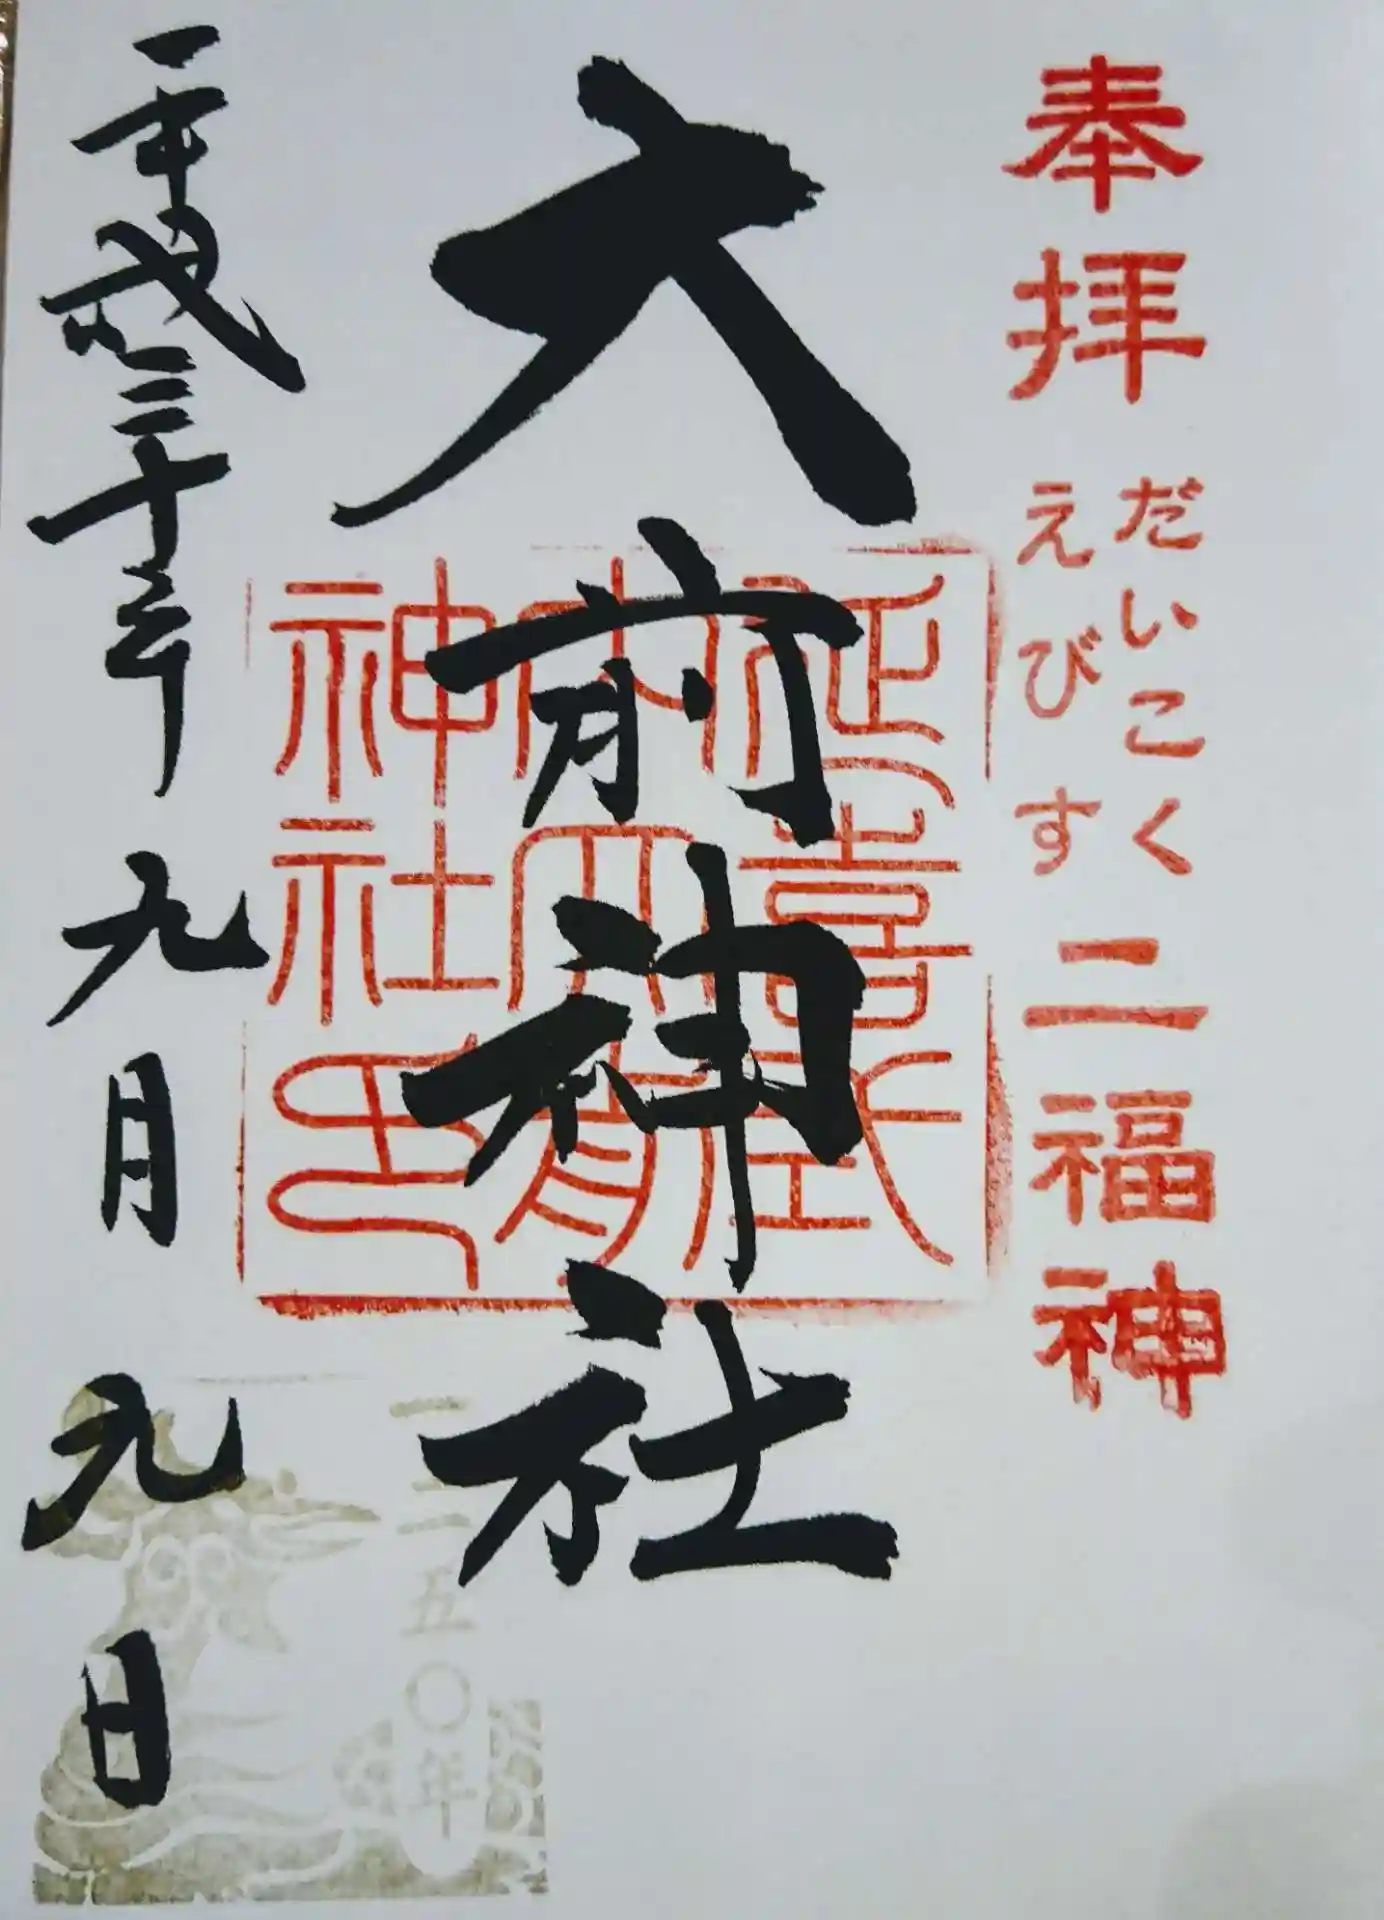 奉拝
だいこく
えびす
二福神
大前神社
延喜式内
大前神社印
平成三十年
九月九日
一二五〇年